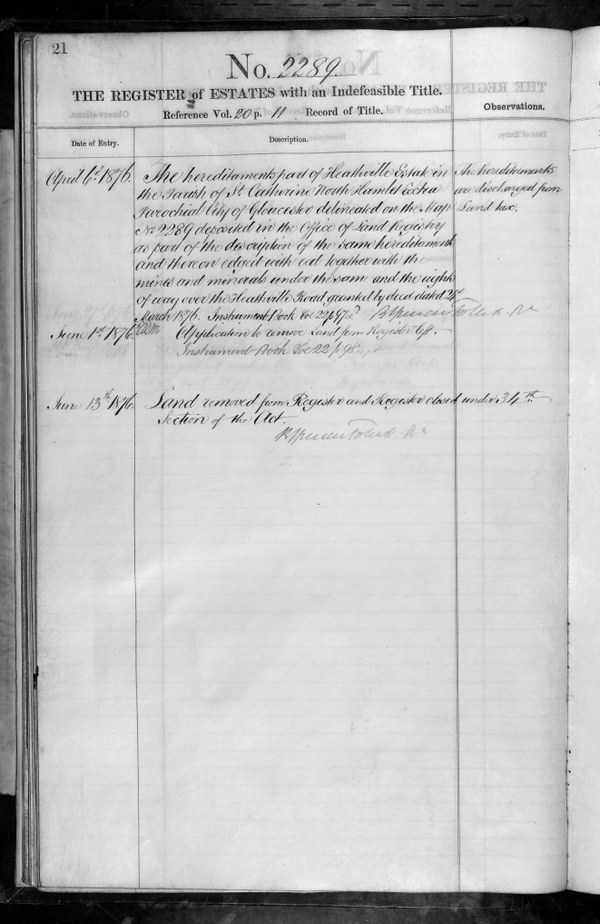 21
No. 2289.
THE REGISTER of ESTATES with an Indefeasible Title.
Reference Vol. 20 p. 11 Record of Title.
Observations.
Date of Entry.
Description.
April 6th 1876.
The hereditaments part of Heathville Estate in
the Parish of St. Catherine North Hamlet Extra
Parochial City of Gloucester delineated on the Map
No 2289 deposited in the Office of Land Registry
as part of the description of the same hereditaments
and thereon edged with red together with the
mines and minerals under the same and the rights
of way over the Heathville Road granted by deed dated
March 1876. Instrument Book Vol 22 p
The hereditaments
are discharged from
Land tax.
June 1st 1876.
Application to remove Land from Register
Instrument Book Vol 22 p 98.
June 13th 1876.
Land removed from Register and Register closed under 34th
Section of the Act.